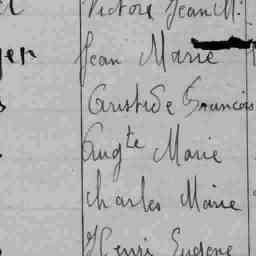 Victore Jean M.
Jean Marie
Aristide François
Augte Marie
Charles Marie
Henri Eugène